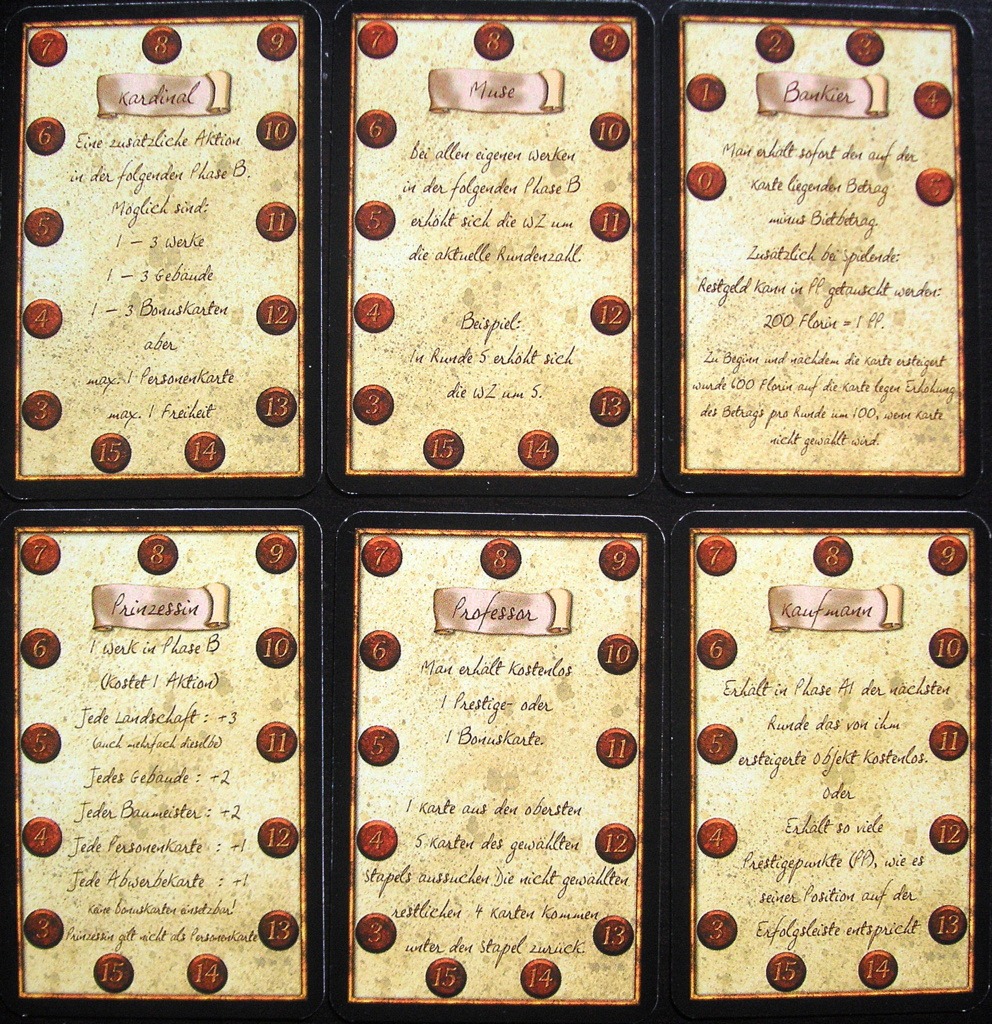 7 8 9
Kardinal
6 10
Eine zusätzliche Aktion
in der folgenden Phase B.
Möglich sind:
5 11
1 – 3 Werke
1 – 3 Gebäude
1 – 3 Bonuskarten
4 12
aber
max. 1 Personenkarte
3 13
max. 1 Freiheit
15 14
7 8 9
Muse
6 10
Bei allen eigenen Werken
in der folgenden Phase B
5 11
erhöht sich die WZ um
die aktuelle Rundenzahl.
4 12
Beispiel:
In Runde 5 erhöht sich
die WZ um 5.
3 13
15 14
2 3
1 4
Bankier
0 5
Man erhält sofort den auf der
Karte liegenden Betrag
minus Bietbetrag.
Zusätzlich bei Spielende:
Restgeld kann in PP getauscht werden:
200 Florin = 1 PP.
Zu Beginn und nachdem die Karte ersteigert
wurde 600 Florin auf die Karte legen Erhöhung
des Betrags pro Runde um 100, wenn Karte
nicht gewählt wird.
7 8 9
Prinzessin
6 10
1 Werk in Phase B
(Kostet 1 Aktion)
Jede Landschaft : +3
5 11
(auch mehrfach dieselbe)
Jedes Gebäude : +2
Jeder Baumeister : +2
4 12
Jede Personenkarte : +1
Jede Abwerbekarte : +1
Keine Bonuskarten einsetzbar!
3 13
Prinzessin gilt nicht als Personenkarte
15 14
7 8 9
Professor
6 10
Man erhält kostenlos
1 Prestige- oder
5 11
1 Bonuskarte.
1 Karte aus den obersten
4 12
5 Karten des gewählten
Stapels aussuchen. Die nicht gewählten
restlichen 4 Karten kommen
3 13
unter den Stapel zurück.
15 14
7 8 9
Kaufmann
6 10
Erhält in Phase A1 der nächsten
Runde das von ihm
5 11
ersteigerte Objekt kostenlos.
oder
4 12
Erhält so viele
Prestigepunkte (PP), wie es
seiner Position auf der
3 13
Erfolgsleiste entspricht
15 14